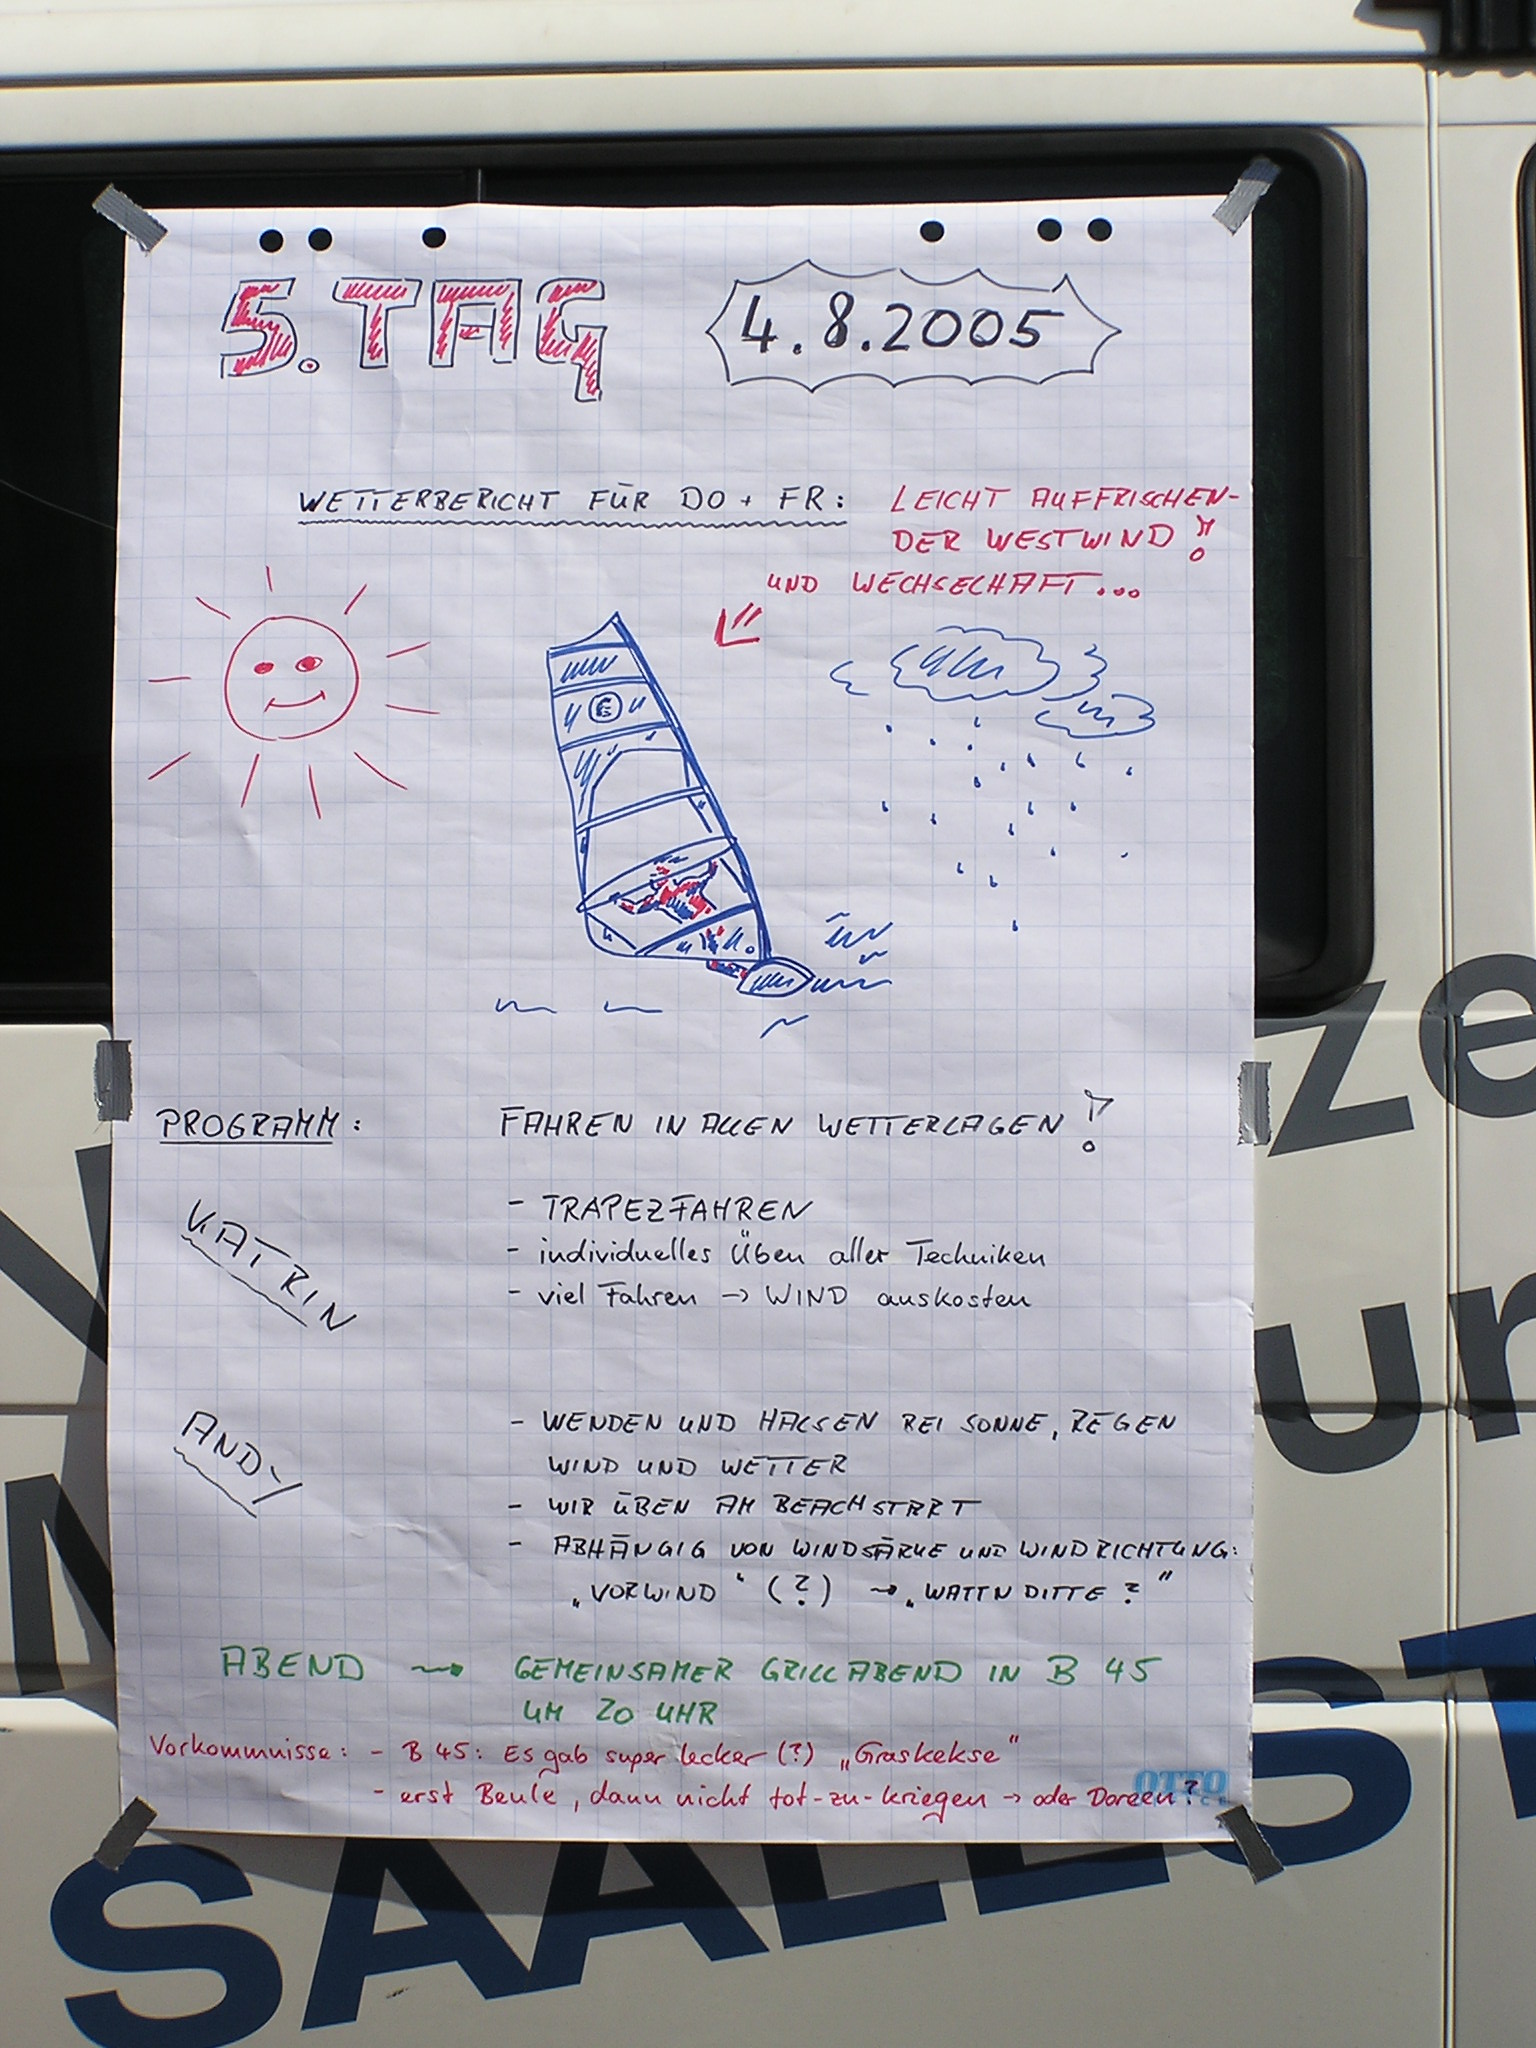 5. TAG
4.8.2005
WETTERBERICHT FÜR DO + FR: LEICHT AUFFRISCHEN-
DER WESTWIND!
UND WECHSELHAFT...
PROGRAMM: FAHREN IN ALLEN WETTERLAGEN!
KATRIN
- TRAPEZFAHREN
- individuelles Üben aller Techniken
- viel Fahren → WIND auskosten
ANDY
- WENDEN UND HALSEN BEI SONNE, REGEN
WIND UND WETTER
- WIR ÜBEN AM BEACHSTART
- ABHÄNGIG VON WINDSÄRKE UND WINDRICHTUNG:
„VORWIND“ (?) → „WATTN DITTE?“
ABEND → GEMEINSAMER GRILLABEND IN B 45
UM 20 UHR
Vorkommnisse: - B 45: Es gab super lecker (?) „Graskekse“
- erst Beule, dann nicht tot-zu-kriegen → oder Doreen?
OTTO
ze
un
SAALEST